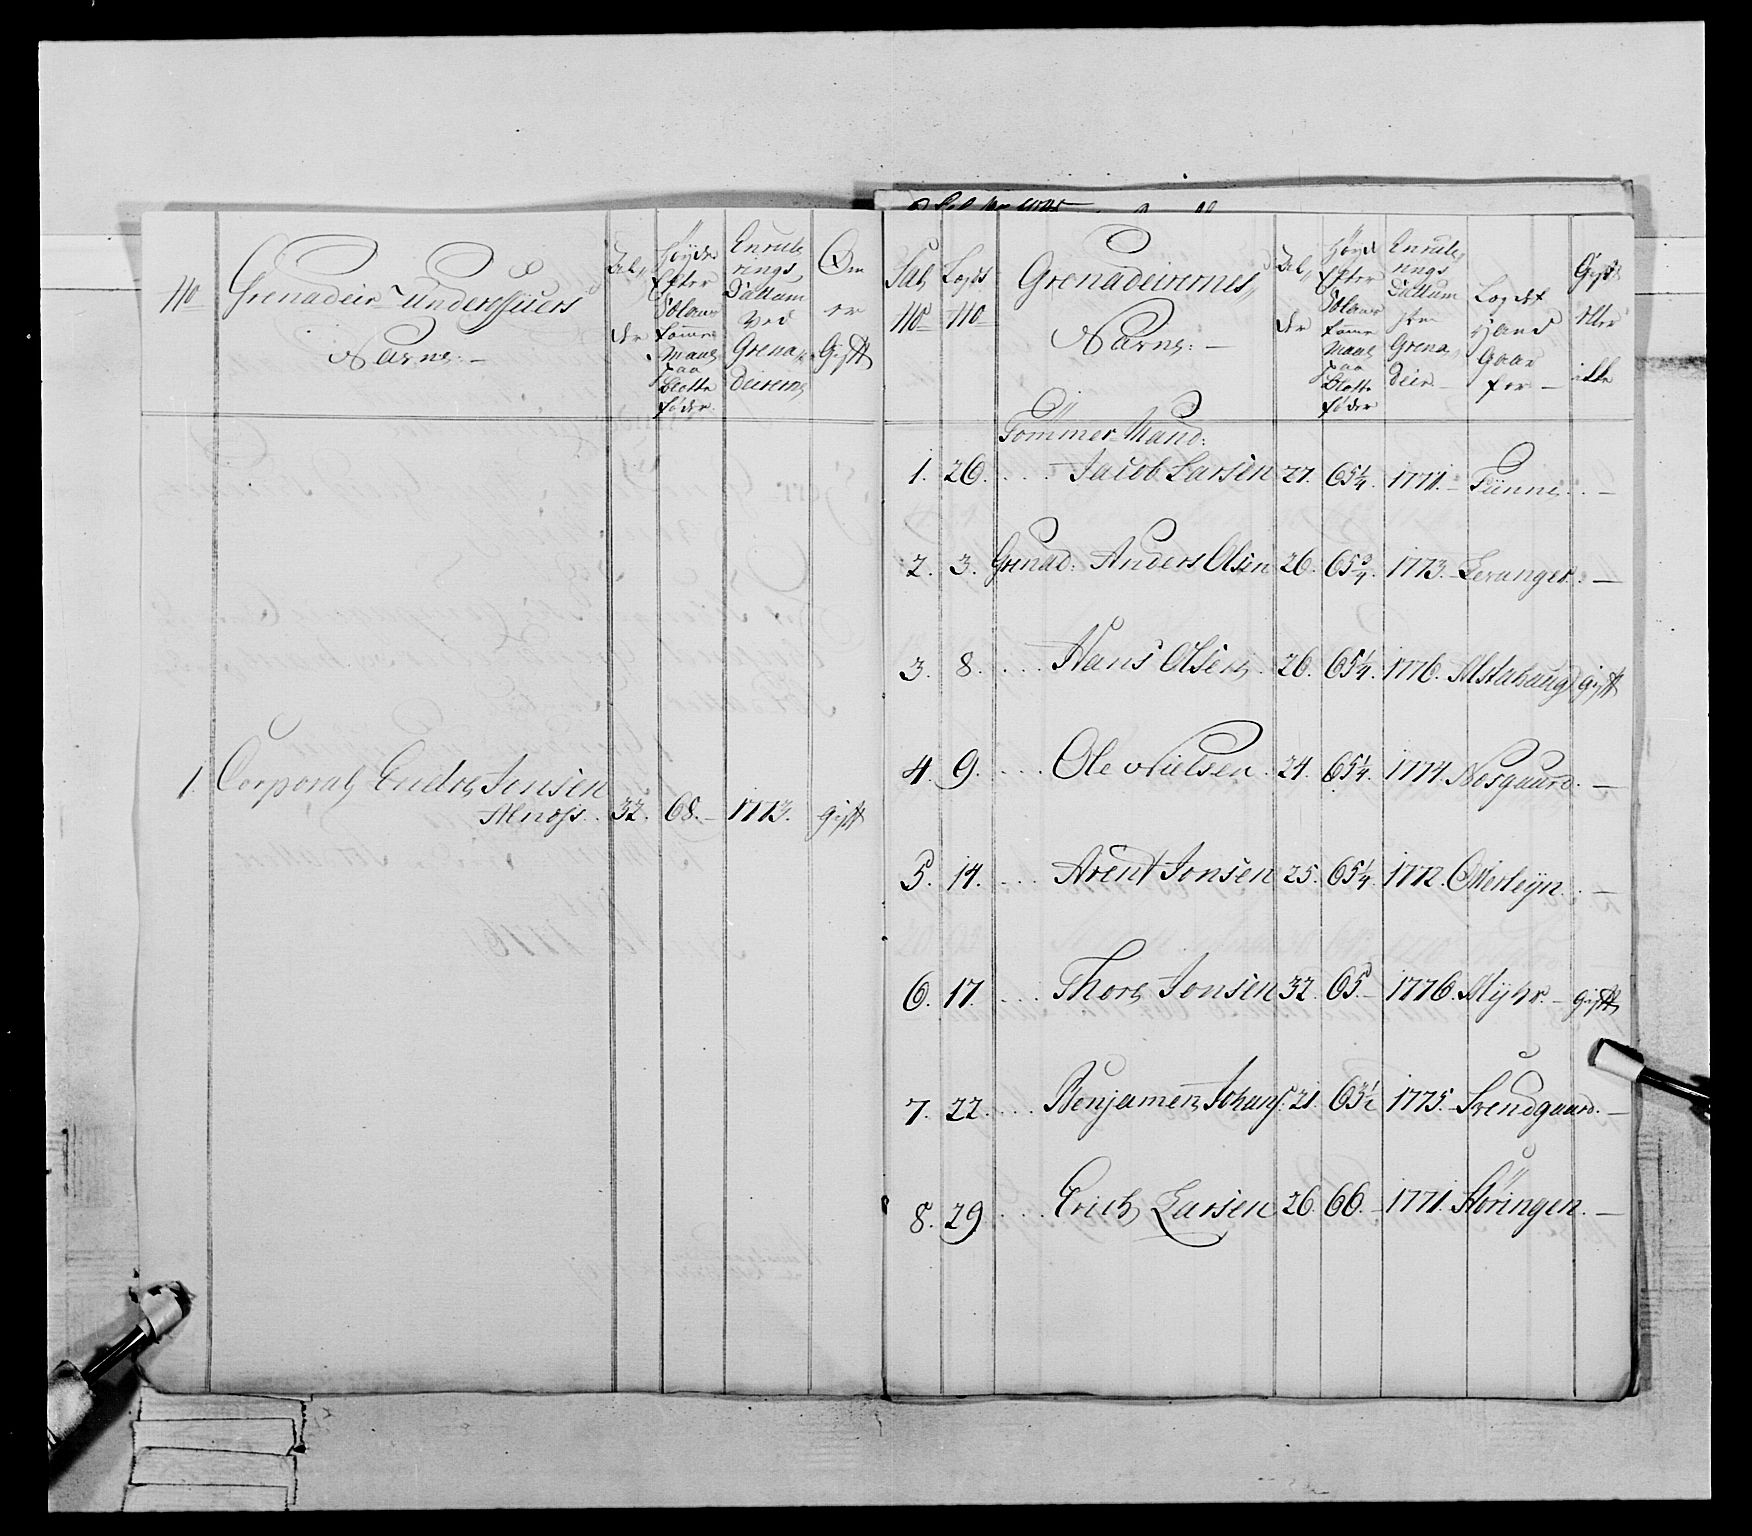 No
Grenadeir Underofficiers
Navne:
Al,
der
Høyde
Efter
Søland
komme
Maal
paa
blotte
føder.
Enrule
rings
Dattum
ved
Grena,
deirerne
Om
er
Gift
1. Corporal Endre Jonsen
Alnæss. 32. 68. 1773. gift
Sal, No
Logds No
Grenadeirernes
Navne:
Al,
der
Høyd
Efter
komme
Maal
paa
blotte
føder
Enrule,
rings
Dattum
Grena,
deir
Logdet
Hand
Gaar
for
Gift
eller
ikke
Tömmer Mand:
1. 26. Jacob Larsen 27. 65 1/4. 1771. Fünne. —
2. 3. Grenad: Anders Olsen 26. 65 3/4. 1773. Levanger. —
3. 8. Hans Olsen 26. 65 1/4. 1776. Alstahaug gift
4. 9. Ole Nielsen. 24. 65 1/4. 1774. Nosgaard. —
5. 14. Arent Jonsen 25. 65 1/4. 1772. —
6. 17. Thore Jonsen 32. 65. 1776. Myhr. gift
7. 22. Benjamen Johans. 21. 63 1/2 1775. Svendgaard. —
8. 29 Erich Larsen 26. 66. 1771. Höringen. —